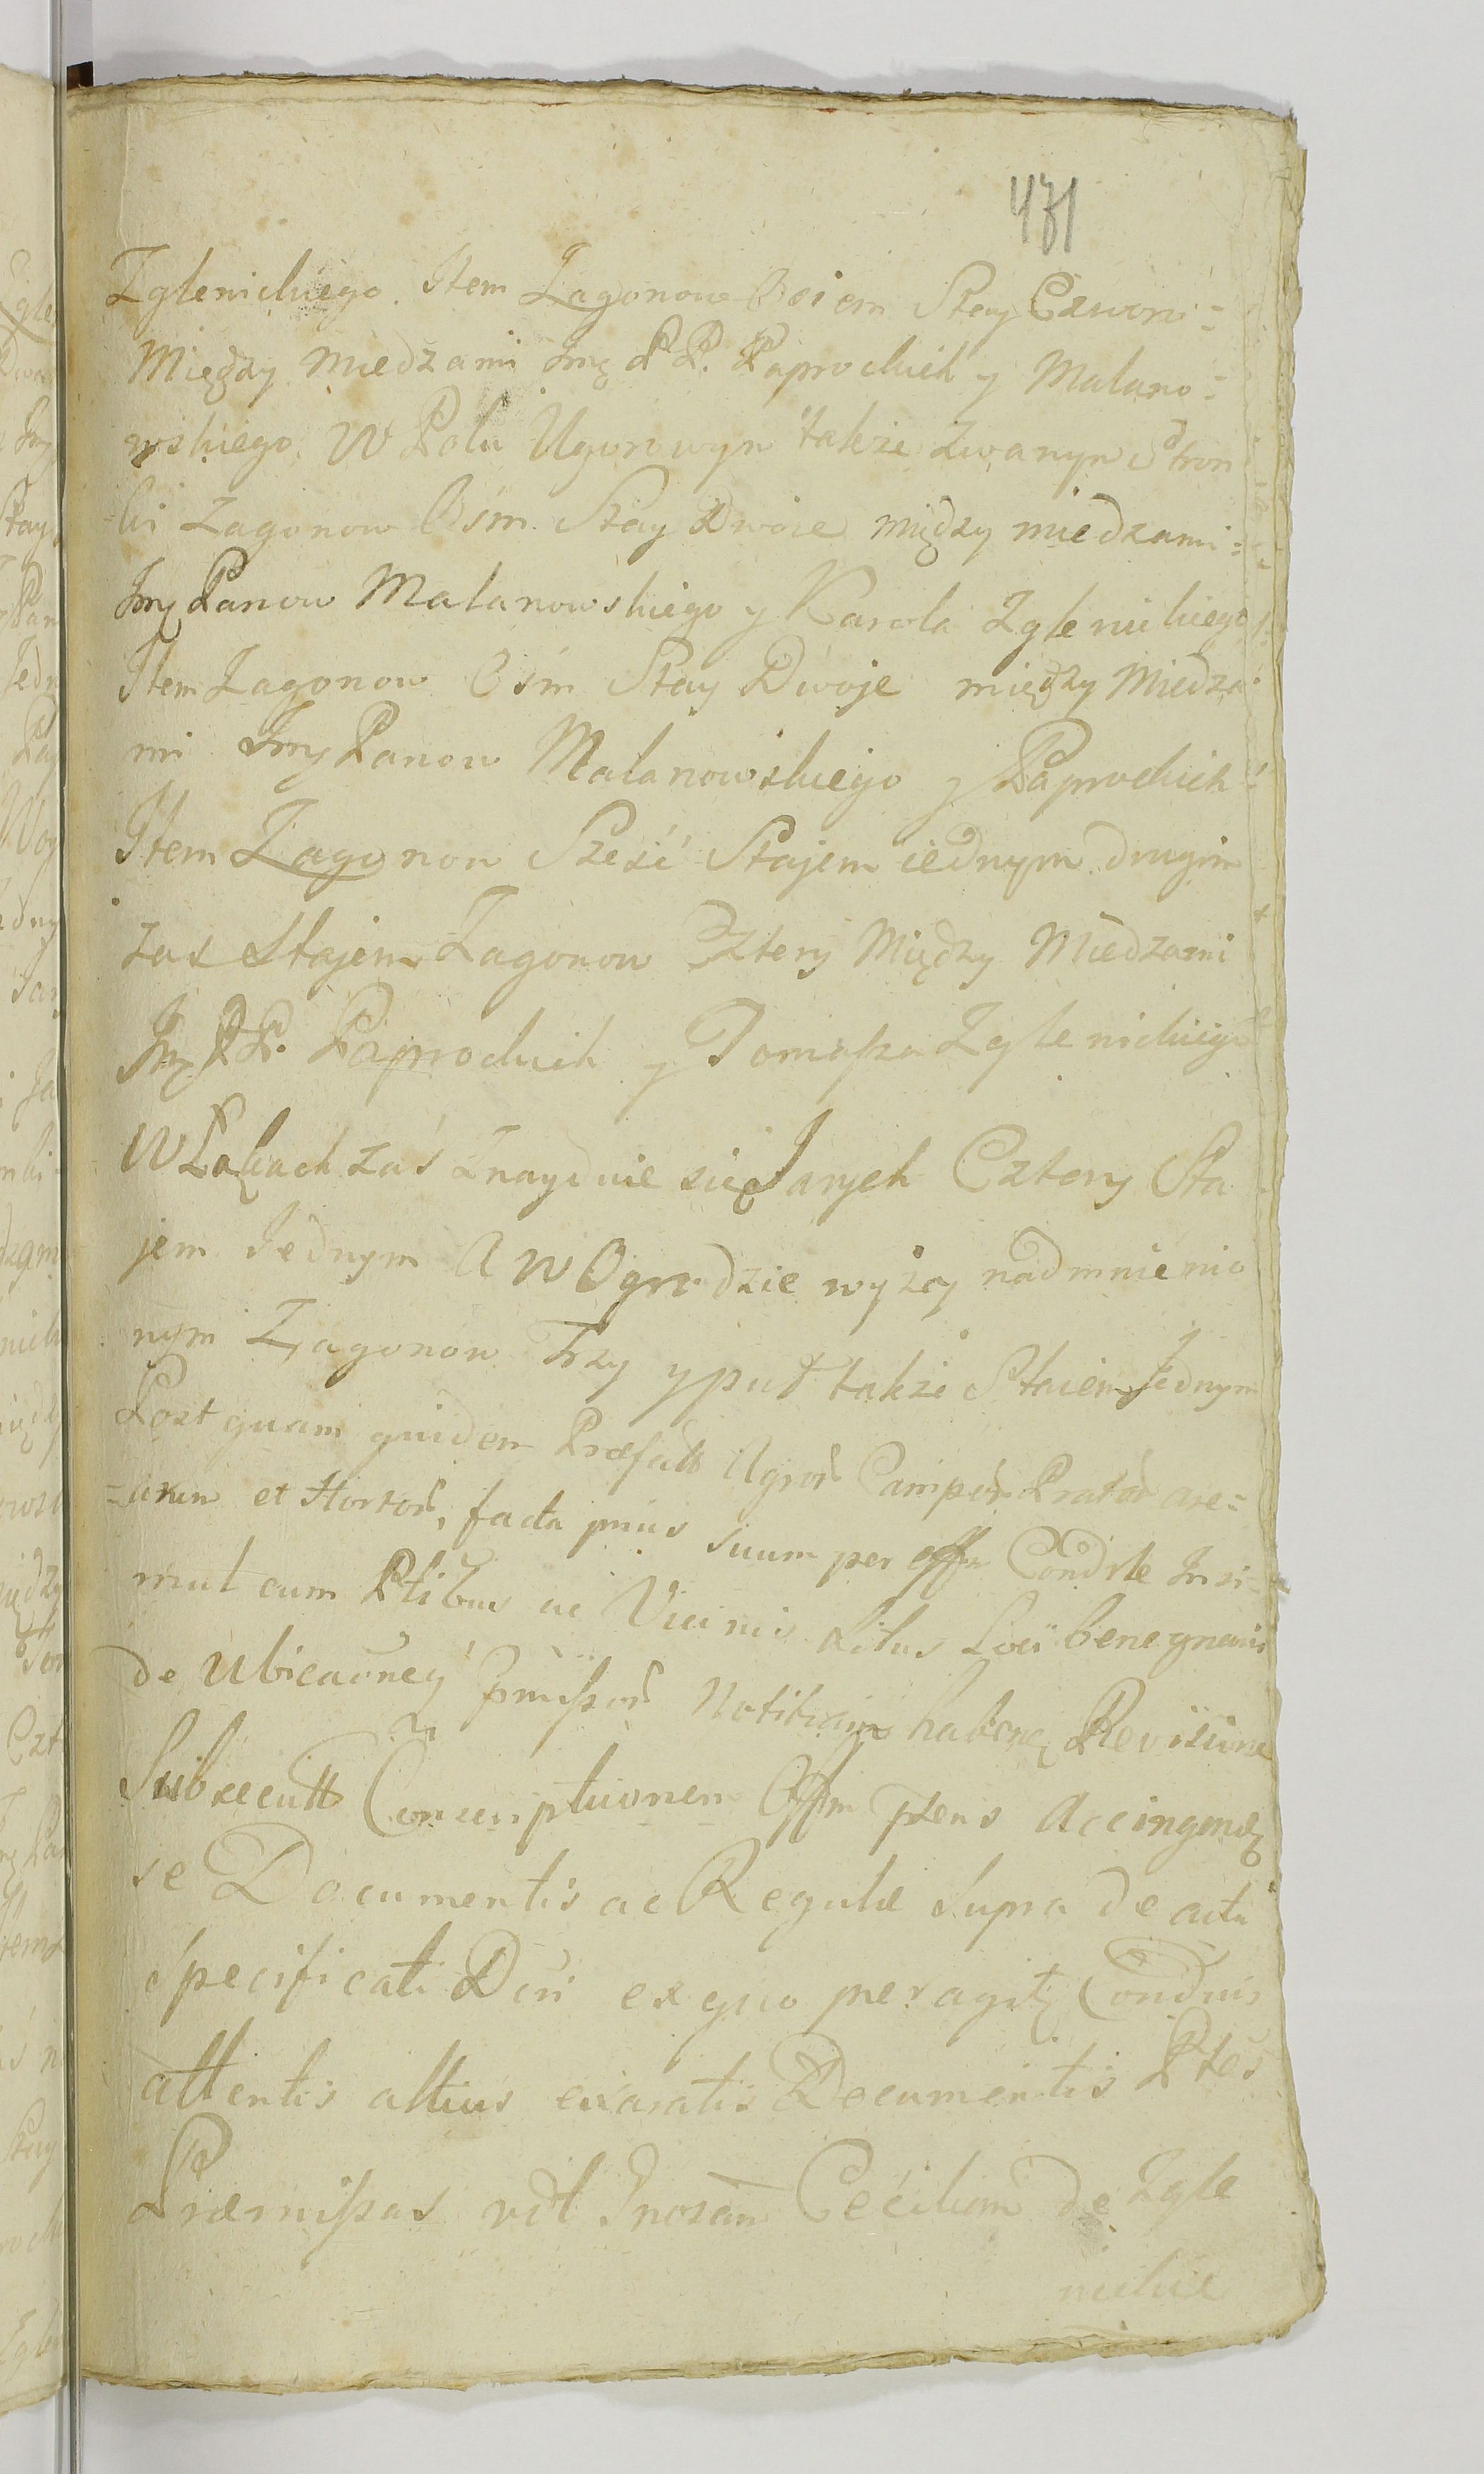 471
Zglenickiego. Item Zagonow Osiem Stay Czworo=
Między Miedzami Jmę PP. Paprockich y Malano=
wskiego. W Polu Ugorowym także zwanym Stron
=ki Zagonow Ośm Stay Dwoie między miedzami=
Jmę Panow Malanowskiego y Karola Zglenickiego
Item Zagonow Ośm Stay Dwoje między Miedza
mi Jmę Panow Malanowskiego y Paprockich
Item Zagonow Sześć Stajem iednym drugim
zas Stajem Zagonow Cztery Między Miedzami
Jmę PP. Paprockich y Tomaszа Zglenickiego
W Łąkach zaś Znayduie się Janych Cztery Sta
jem Jednym A w Ogrodzie wyżey nadmienio
nym Zagonow Trzy y puł także Staiem Jednym
Post quam quidem Præfatt Agror Campor Prator are=
=arum et Hortor, facta prius suum per offm Condrle Insi=
mul cum Ptibus ac Vicinis situs Loci bene gnaris
de Ubicaõneq pmissor Notitiam haben Revisione
Subsecutt Conscriptionem Offm pens Accingendo
se Documentis ac Regulæ Supra de actu
specificati Dći ex quo peragitę Condnis
attentis altius exaratis Documentis Ptes
Præmissas vdł Gnosam Ceciliam de Zgle
nickie